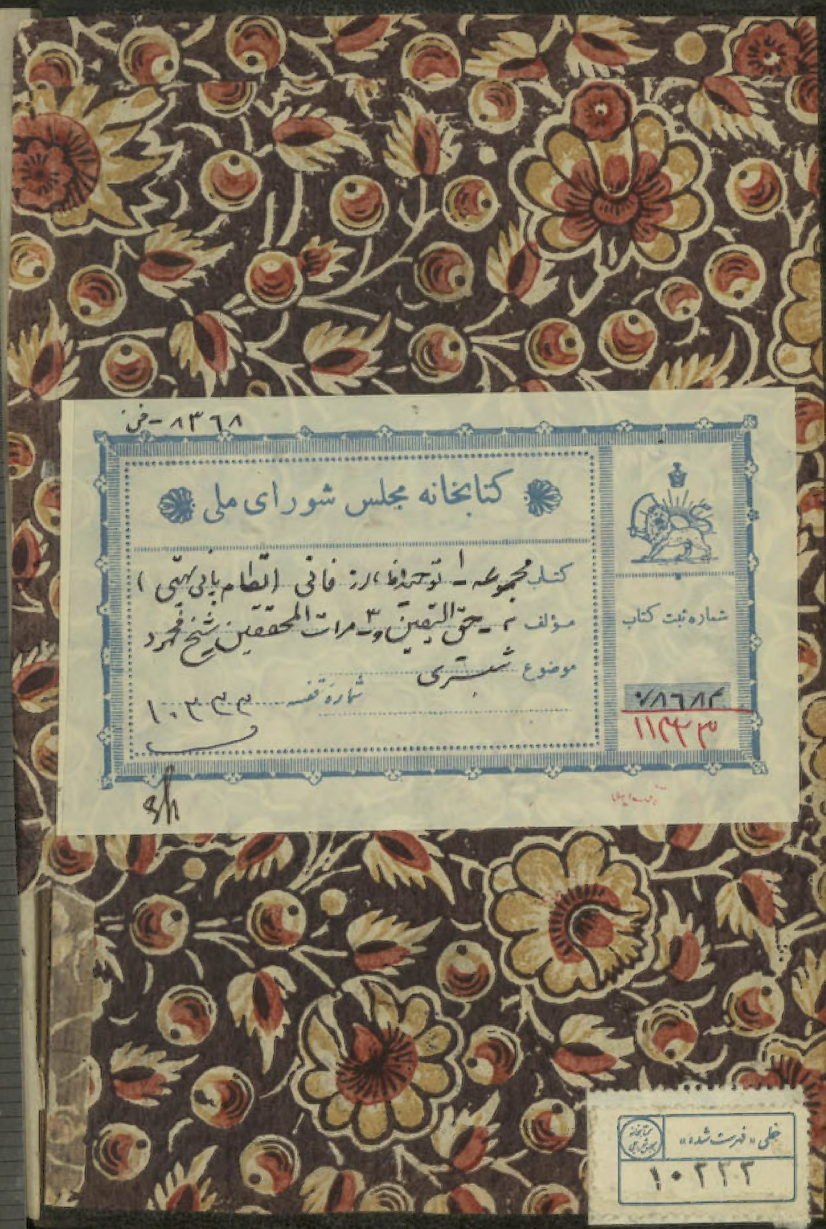 ۸۳۶۸ - فن
کتابخانه مجلس شورای ملی
کتاب مجموعه ۱ - توحید از فانی (نظام پانی پتی)
مؤلف ۲ - حق الیقین و ۳ - مرات المحققین شیخ محمود
موضوع شبستری
شماره قفسه ۱۰۳۳۳
شماره ثبت کتاب
۷۸۶۸۲
۱۱۴۳۳
خطی «فهرست شده»
۱۰۳۳۳